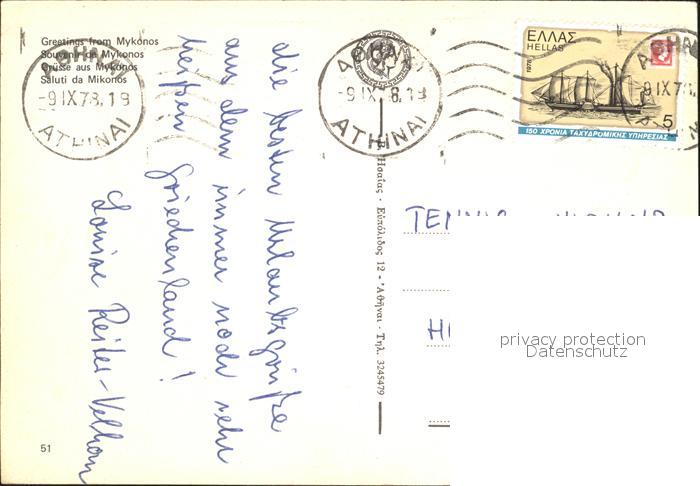 Greetings from Mykonos
Souvenir de Mykonos
Grüsse aus Mykonos
Saluti da Mikonos
ΑΘΗΝΑΙ
-9 IX 78.19
ATHINAI
ΑΘΗΝΑΙ
-9 IX 78.19
ATHINAI
ΕΛΛΑΣ
HELLAS
1978
5
150 ΧΡΟΝΙΑ ΤΑΧΥΔΡΟΜΙΚΗΣ ΥΠΗΡΕΣΙΑΣ
9 IX 78.
die besten Urlaubsgrüße
aus dem immer noch sehr
heißen Griechenland!
Louise Reiter-
Ἡσαΐας · Εὐπόλιδος 12 · Ἀθῆναι · Τηλ. 3245479
privacy protection
Datenschutz
51